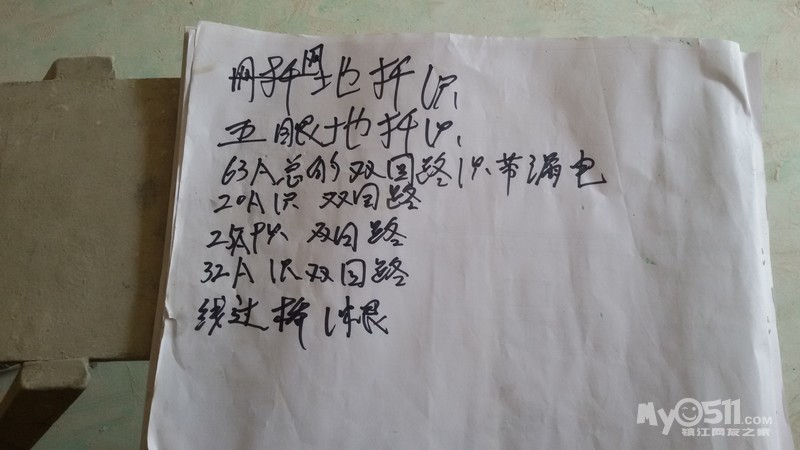 网 地插 1只
五眼地插1只
63A总的双回路1只带漏电
20A1只 双回路
25A1只 双回路
32A 1只双回路
线 1根
My0511.COM
镇江网友之家